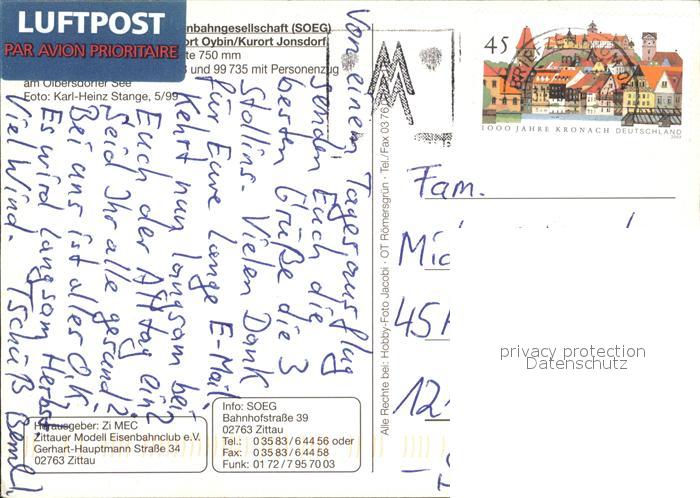 LUFTPOST
PAR AVION PRIORITAIRE
enbahngesellschaft (SOEG)
ort Oybin/Kurort Jonsdorf
te 750 mm
und 99 735 mit Personenzug
am Olbersdorfer See
Foto: Karl-Heinz Stange, 5/99
Von einem Tagesausflug
senden Euch die
besten Grüße die 3
Stollins. Vielen Dank
für Eure lange E-Mail.
Kehrt nun langsam bei
Euch der Alltag ein?
Seid Ihr alle gesund?
Bei uns ist alles O.K.
Es wird langsam Herbst
Viel Wind. Tschüß Bernd
Herausgeber: Zi MEC
Zittauer Modell Eisenbahnclub e.V.
Gerhart-Hauptmann Straße 34
02763 Zittau
Info: SOEG
Bahnhofstraße 39
02763 Zittau
Tel.: 0 35 83 / 6 44 56 oder
Fax: 0 35 83 / 6 44 58
Funk: 01 72 / 7 95 70 03
Alle Rechte bei: Hobby-Foto Jacobi · OT Römersgrün · Tel./Fax 03 76
45
1000 JAHRE KRONACH DEUTSCHLAND
2003
BRIEF
Fam.
Mic
45
12
privacy protection
Datenschutz